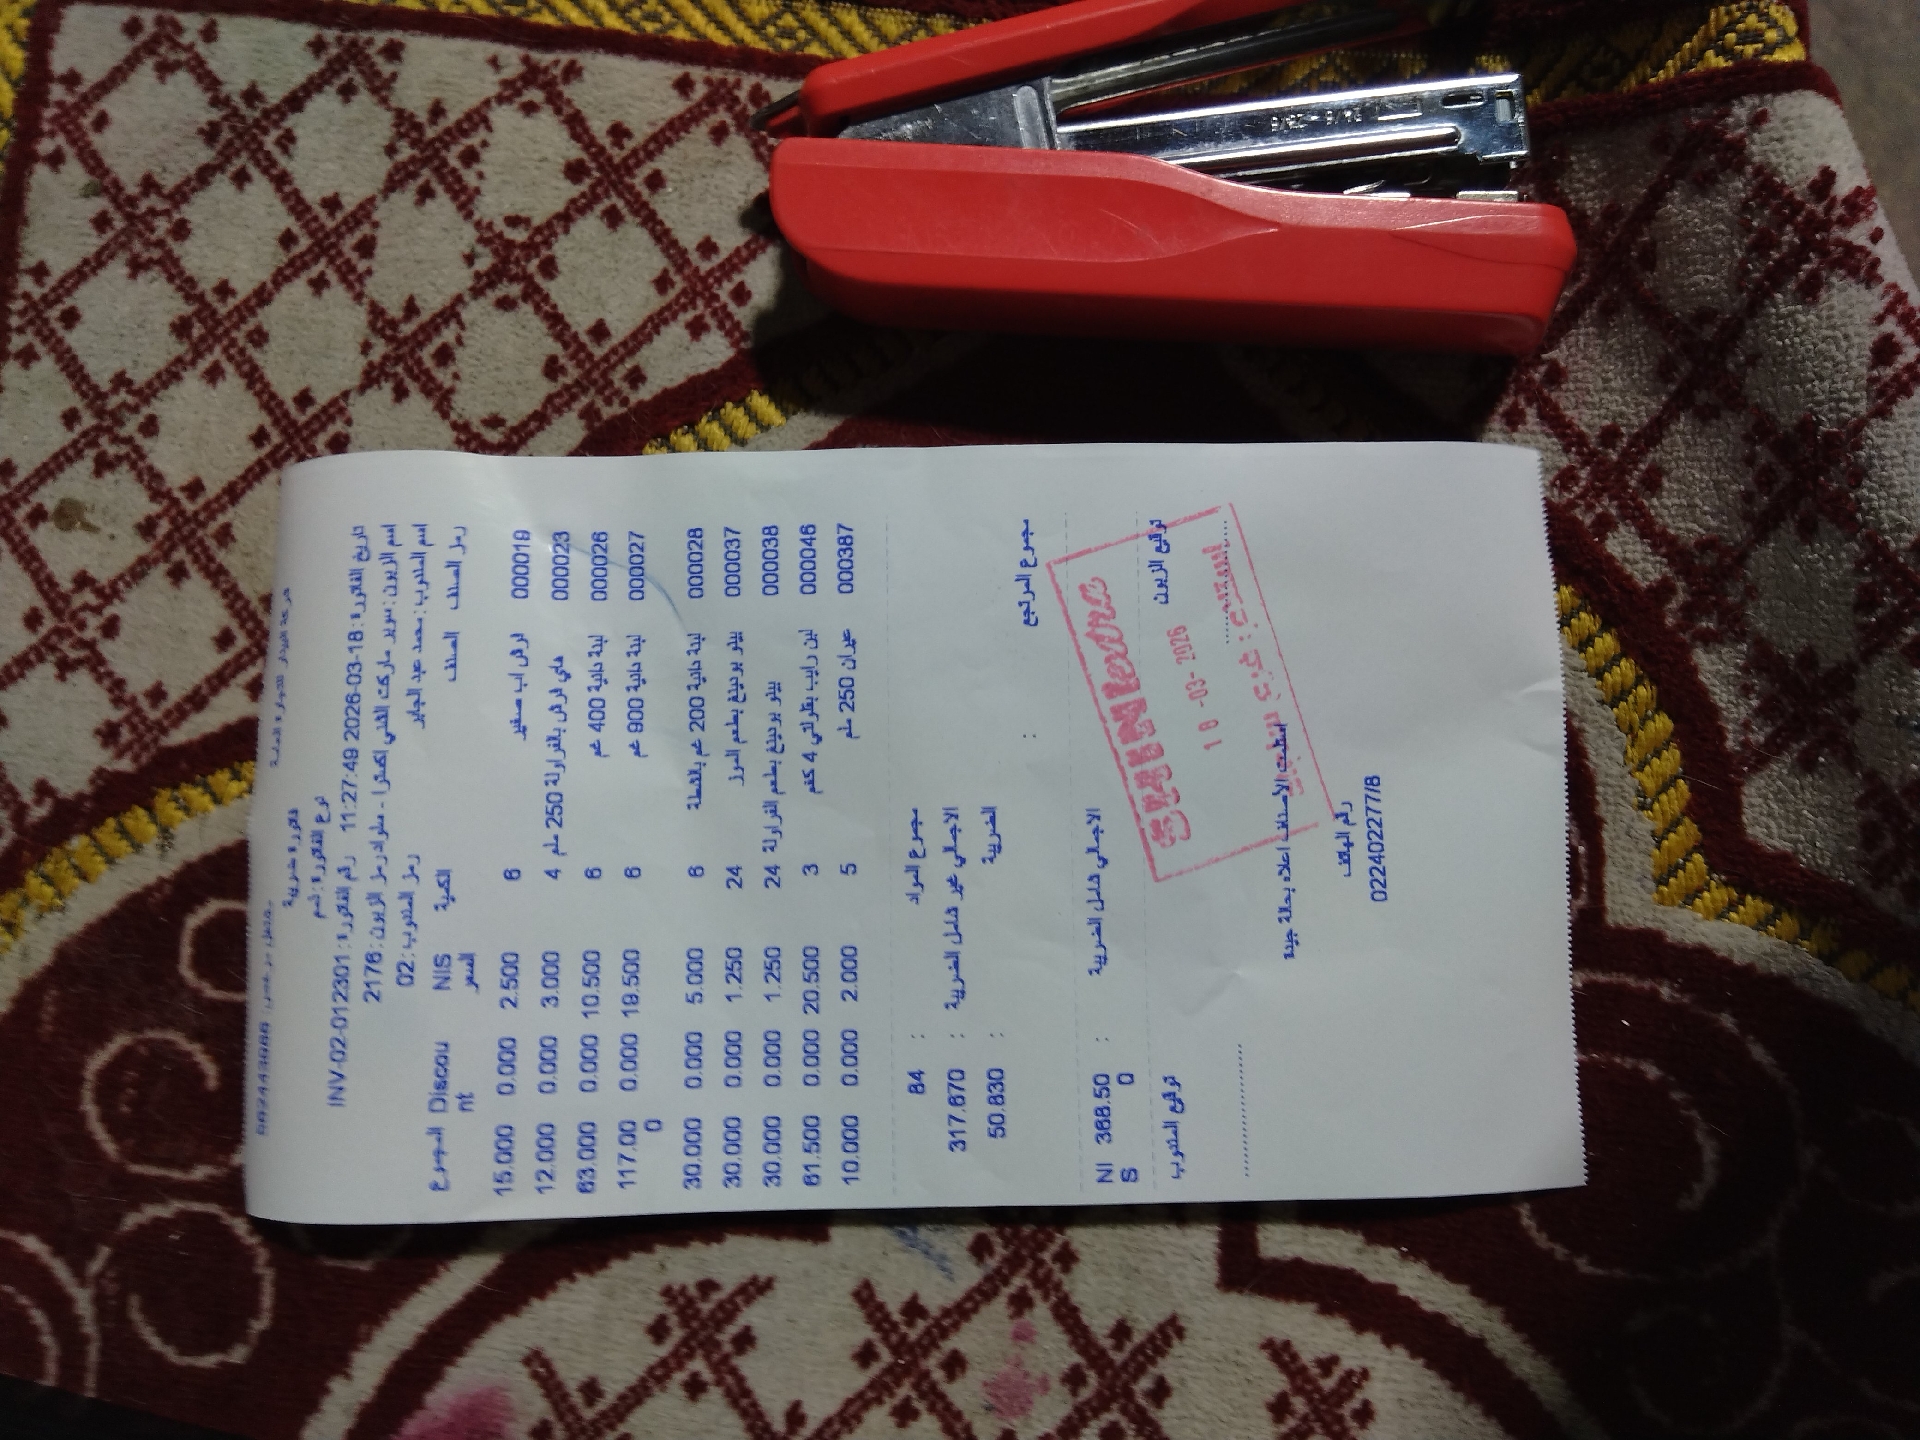 شركة البيدر للتجارة العامة
فاتورة ضريبية
نوع الفاتورة : ذمم
تاريخ الفاتورة : 18-03-2026 11:27:49 رقم الفاتورة : INV-02-012301
اسم الزبون : سوبر ماركت الغني اكسترا - رمز الزبون : 2176
اسم المندوب : محمد عبد الجابر رمز المندوب : 02
رمز الصنف الصنف الكمية NIS السعر Discount المجموع
000019 لوفل اب صغير 6 2.500 0.000 15.000
000023 250 ملم 4 3.000 0.000 12.000
000026 لبنة بلدية 400 غم 6 10.500 0.000 63.000
000027 لبنة بلدية 900 غم 6 19.500 0.000 117.000
000028 لبنة بلدية 200 غم 6 5.000 0.000 30.000
000037 بودينغ بطعم الموز 24 1.250 0.000 30.000
000038 بودينغ بطعم الفراولة 24 1.250 0.000 30.000
000046 لبن رايب 4 كغم 3 20.500 0.000 61.500
000387 عيران 250 ملم 5 2.000 0.000 10.000
مجموع المواد : 84
الاجمالي غير شامل الضريبة : 317.670
الضريبة : 50.830
مجموع المرتجع :
الاجمالي شامل الضريبة : 368.500 NIS
توقيع الزبون توقيع المندوب
extra
18 -03- 2026
استلمت الأصناف اعلاه بحالة جيدة
رقم الهاتف
022402277/8
24/6 - 26/6